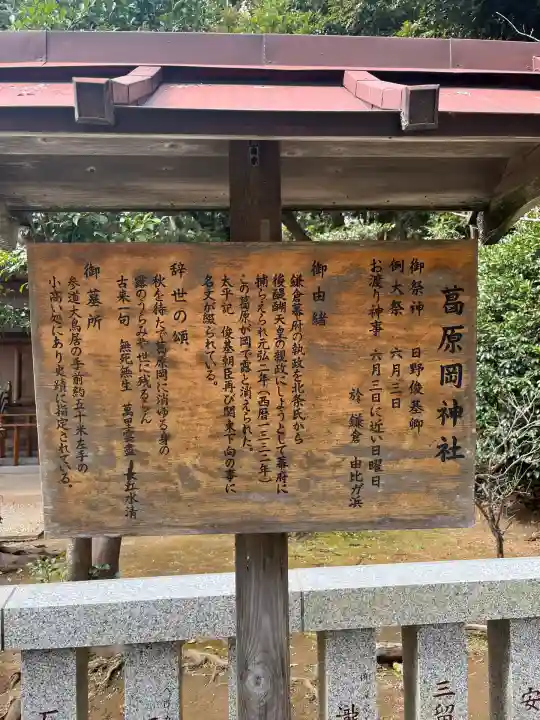 葛原岡神社
御祭神 日野俊基卿
例大祭 六月三日
お渡り神事 六月三日に近い日曜日
於 鎌倉 由比ガ浜
御由緒
鎌倉幕府の執政を北条氏から
後醍醐天皇の親政にしようとして幕府に
捕らえられ元弘二年(西暦一三三二年)
この葛原が岡で露と消えられた。
太平記 俊基朝臣再び関東下向の事に
名文が遺られている。
辞世の頌
秋を待たで葛原岡に消ゆる身の
露のうらみや世に残るらん
古来一句 無死無生 萬里雲盡 長江水清
御墓所
参道大鳥居の手前約五十米左手の
小高い処にあり史蹟に指定されている。
瀧
三留
安